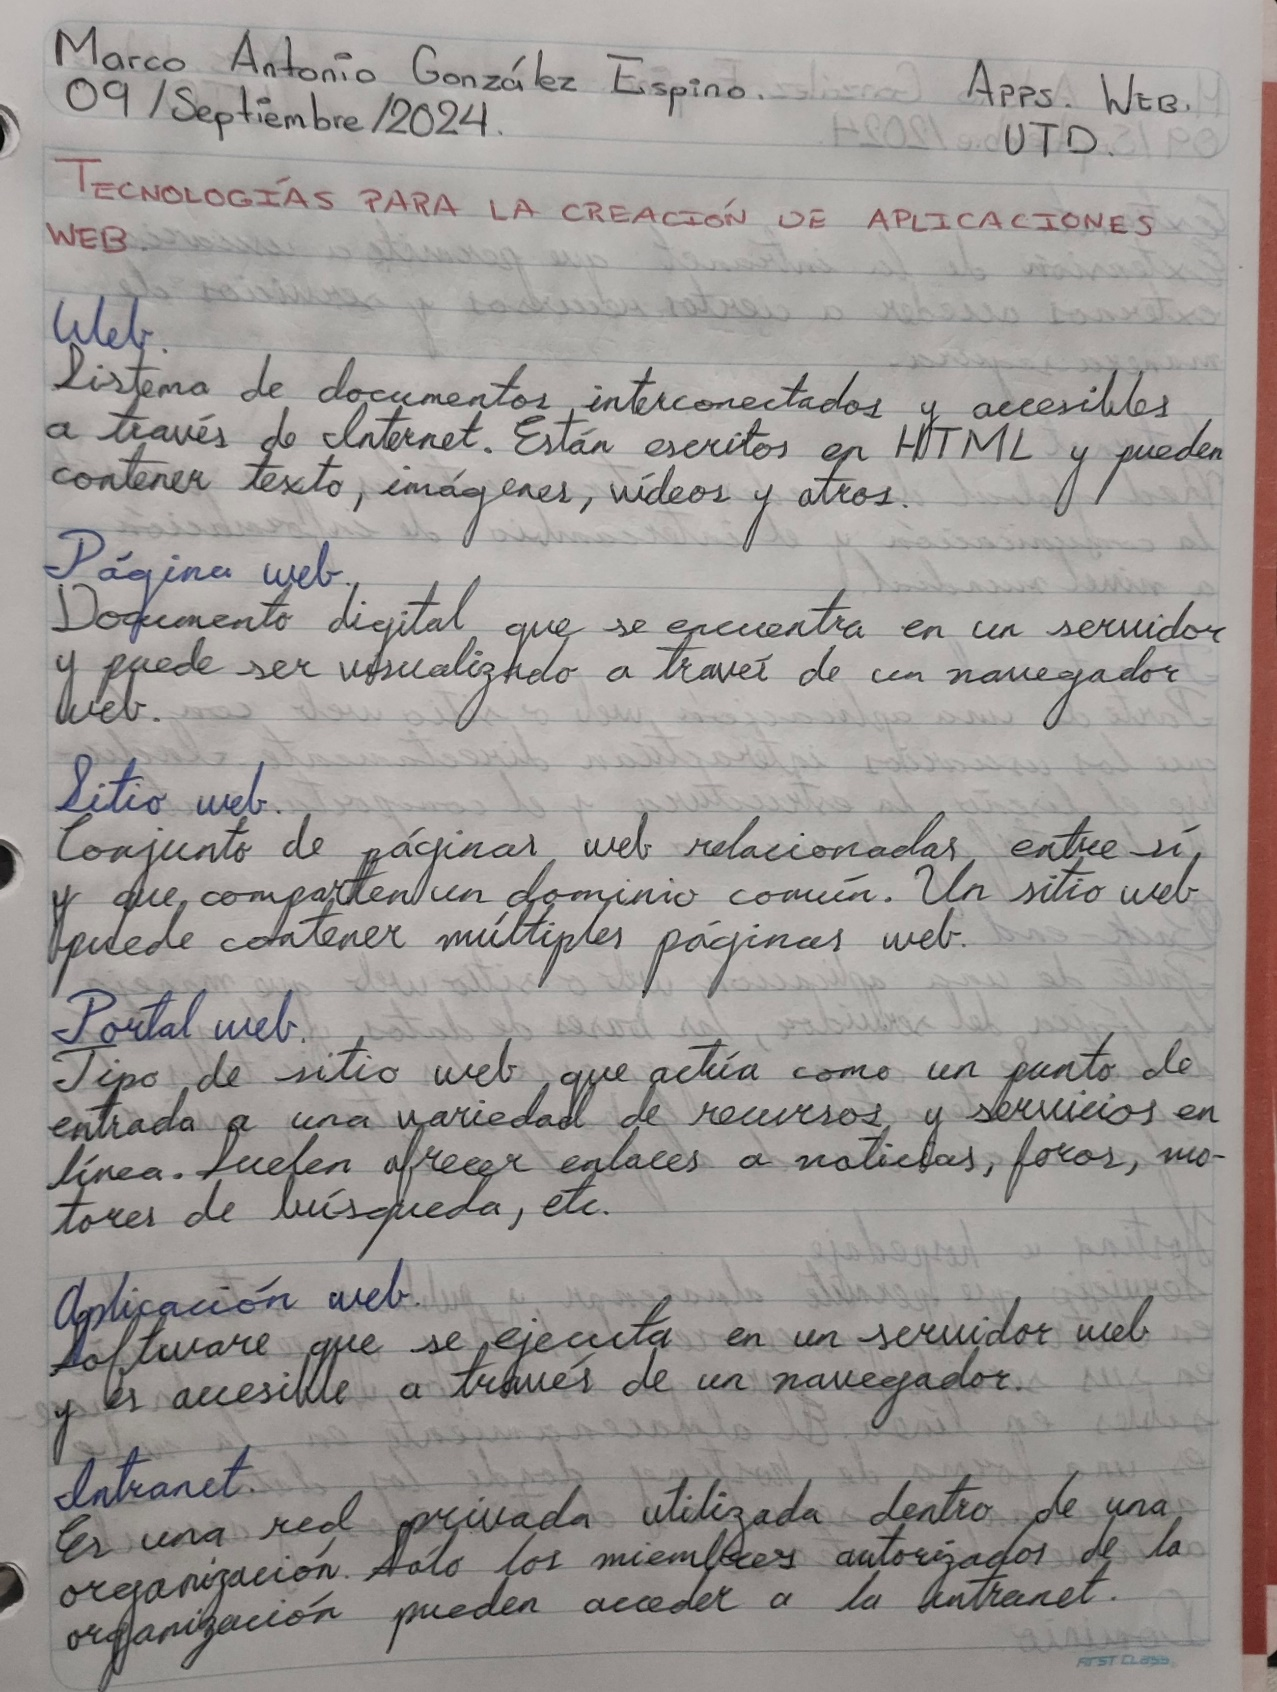 Marco Antonio González Espino.
Apps. Web.
09/Septiembre/2024.
UTD.
TECNOLOGÍAS PARA LA CREACIÓN DE APLICACIONES
WEB.
Web.
Sistema de documentos interconectados y accesibles
a través de Internet. Están escritos en HTML y pueden
contener texto, imágenes, vídeos y otros.
Página web.
Documento digital que se encuentra en un servidor
y puede ser visualizado a través de un navegador
web.
Sitio web.
Conjunto de páginas web relacionadas entre sí,
y que comparten un dominio común. Un sitio web
puede contener múltiples páginas web.
Portal web.
Tipo de sitio web que actúa como un punto de
entrada a una variedad de recursos y servicios en
línea. Suelen ofrecer enlaces a noticias, foros, mo-
tores de búsqueda, etc.
Aplicación web.
Software que se ejecuta en un servidor web
y es accesible a través de un navegador.
Intranet.
Es una red privada utilizada dentro de una
organización. Sólo los miembros autorizados de la
organización pueden acceder a la intranet.
FIRST CLASS